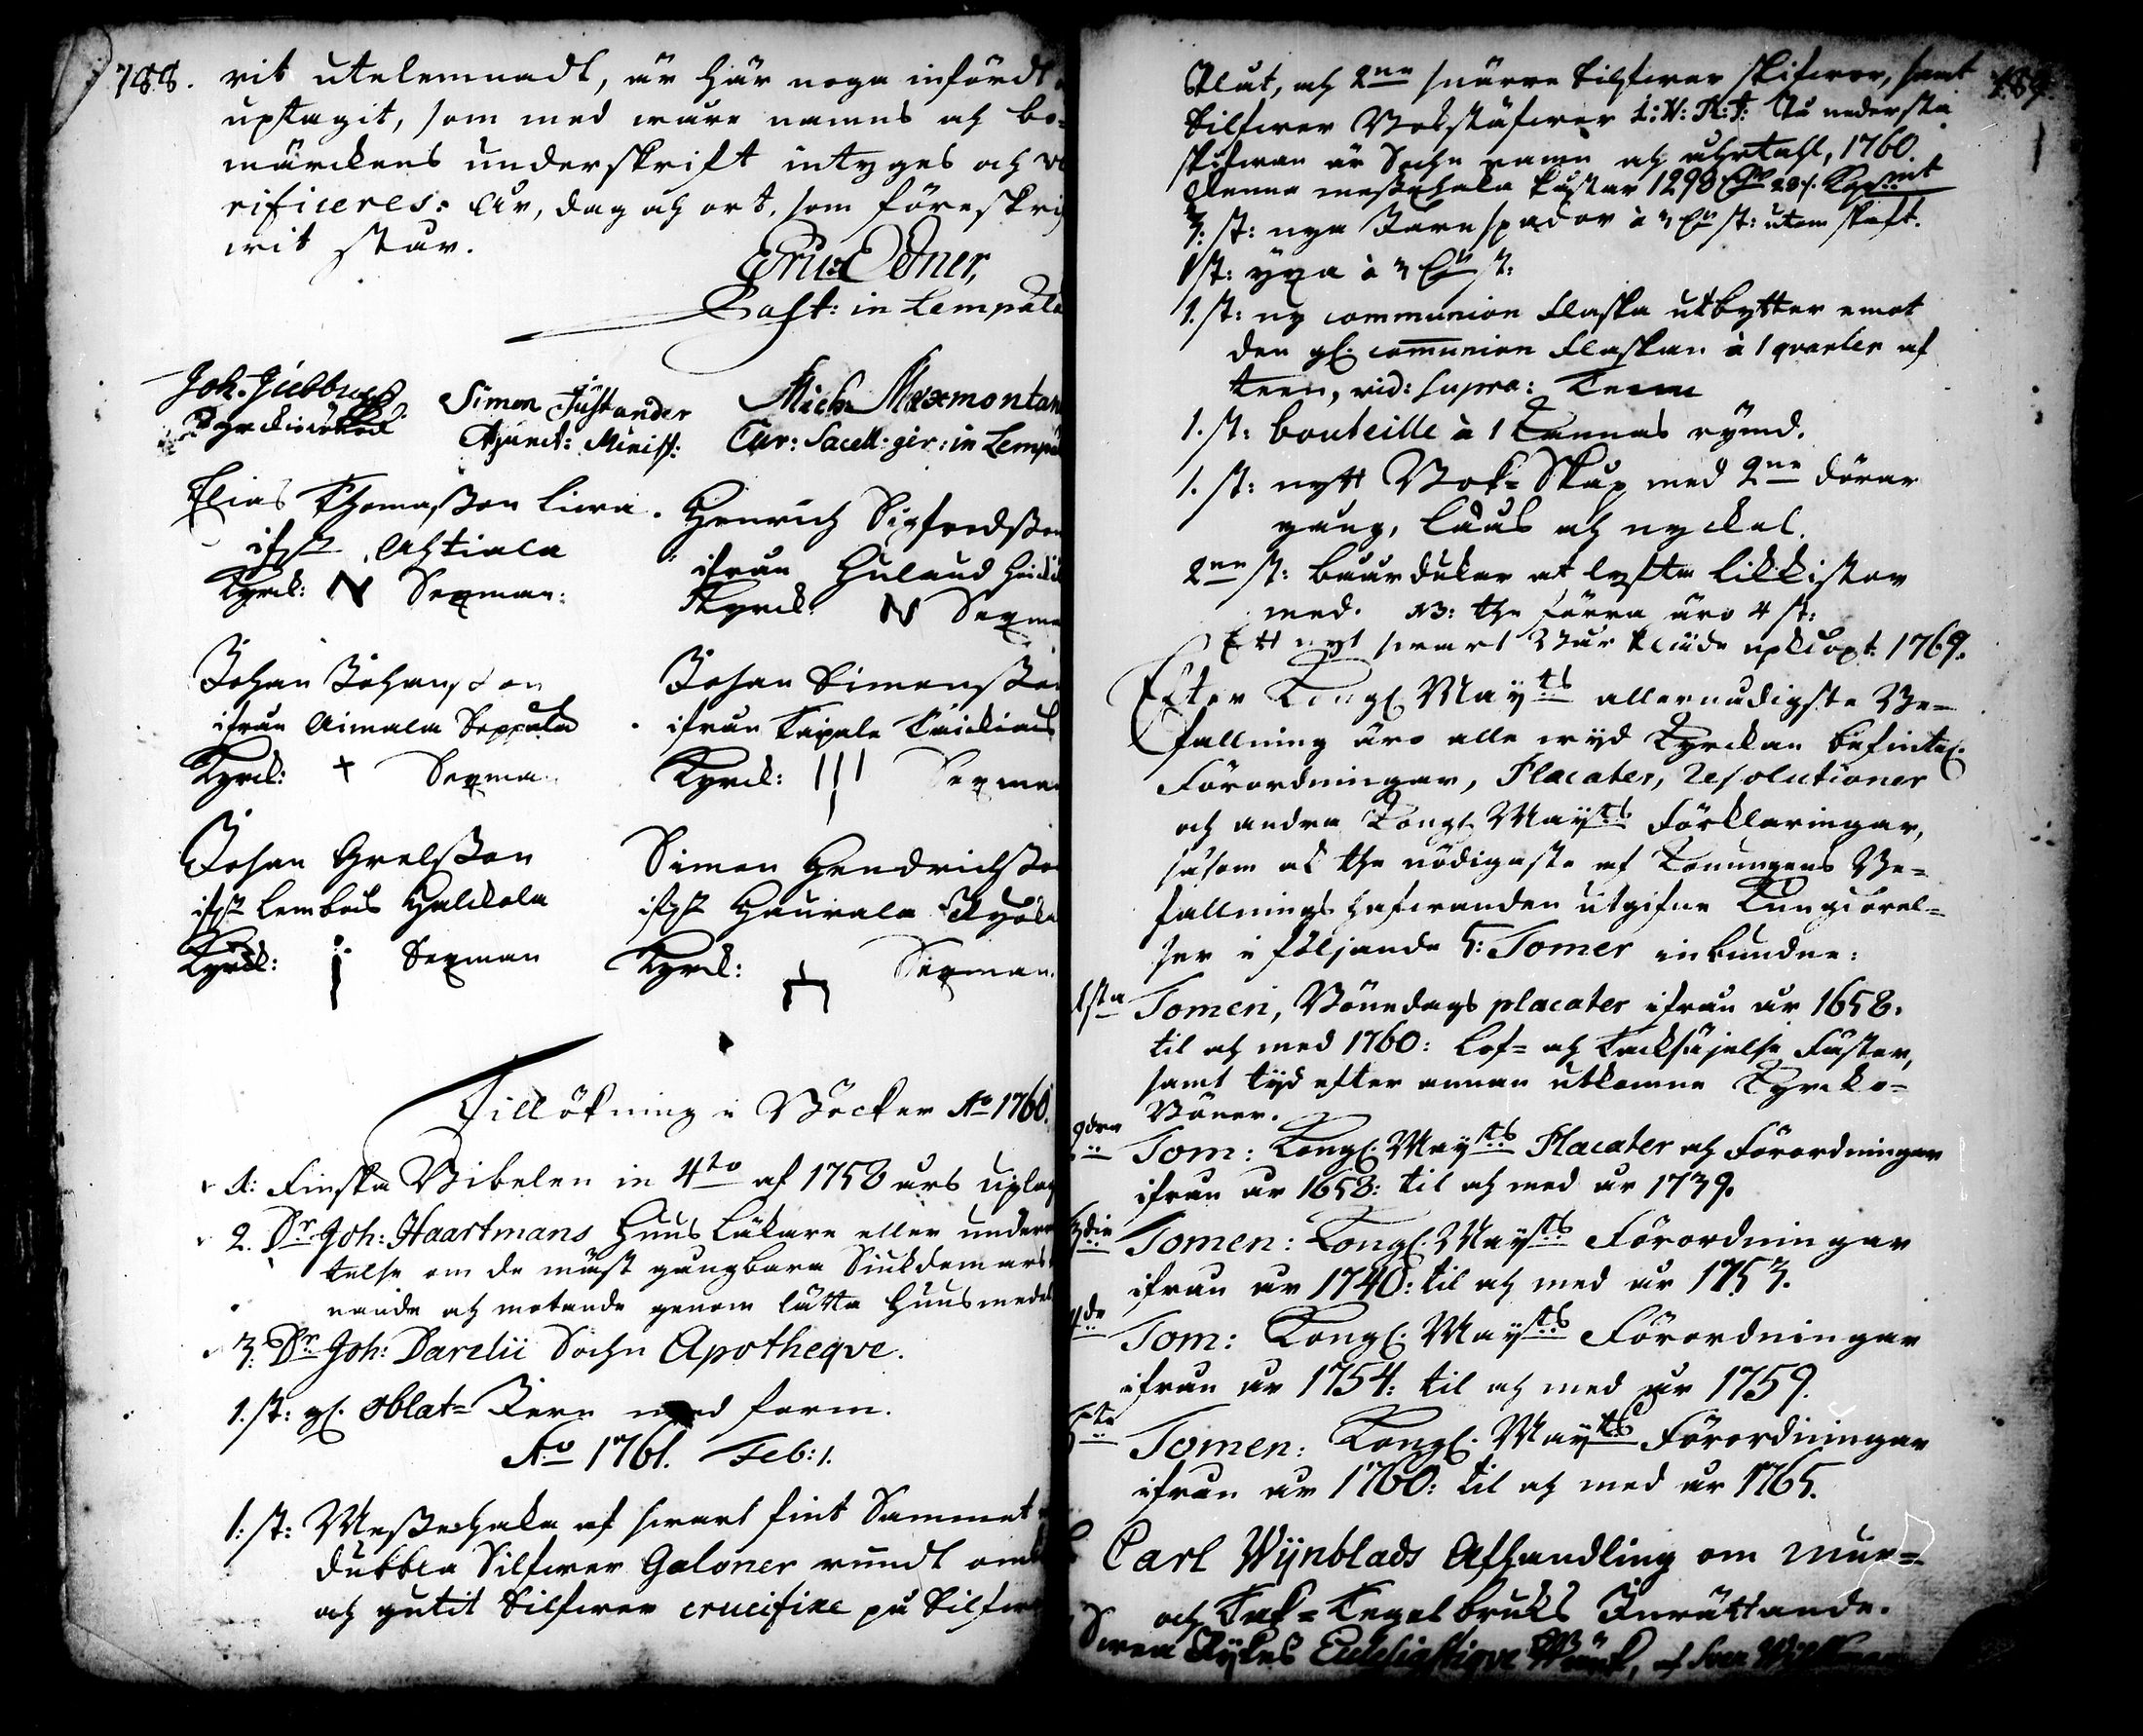 788.
rit utelemnadt, är här noga infördt
uptagit, som med wåre namns och bo-
märckens underskrift intyges och ve
rificeres: Åhr, dag och ort, som föreskrif
wit står.
Eric Edner,
Past: in Lempälä
Joh.
Simon Justander
Adjunct: Minist:
Mich: Maxmontan
Cur: Sacell: ger: in Lempä
Elias Thomasson Liura.
ifrån Ahtiala
Kyrck: N Sexman:
Henrich Sigfredsson
ifrån Hulaud
Kyrck: N Sexma
Johan Johansson
ifrån Aimala Seppälä
Kyrck: + Sexman
Johan Simonsson
ifrån Taipale
Kyrck: ||| Sexman
Johan Grelsson
ifrån Lembois Halckola
Kyrck: Sexman
Simon Hendrichsson
ifrån Haurala
Kyrck: Sexman.
Tillökning i Böcker Ao 1760.
1: Finska Bibelen in 4to af 1758 års uplag
2. Dr Joh: Haartmans Huus Läkare eller under
telse om de mäst gångbara Siukdomars
nande och motande genom lätta Huusmedel
3: Dr Joh: Darelii Sochn Apotheqve.
1. st: gl. oblat= Jern med form.
Ao 1761. Feb: 1.
1: st: Messehaka af swart fint Sammet
dubbla Silfwer Galoner rundt om
och gutit Silfwer crucifixe på Silfwer
789.
Plåt, och 2ne smärre Silfwer skifwor, samt
Silfwer Bokstäfwer På nedersta
skifwan är Sochn namn och åhrtahl, 1760.
Denna messehaka kostar 1298
3: st: nya Jernspador à 3 st: utom skaft.
1 st: yxa à 3
1. st: ny communion Flaska utbytter emot
den gl. communion Flaskan à 1 qvarter af
teen, vid: supra: Tenn
1. st: bouteille à 1 Kannas rymd.
1. st: nytt Bok= Skåp med 2ne dörar
gång, låås och nyckel.
2ne st: båårdukar at lyfta likkistor
med. NB: the förra äro 4 st:
Ett nytt swart Bår kläde upkiöpt 1769.
Efter Kongl. Mayts allernådigste Be-
fallning äro alle wyd Kyrckan befintel.
Förordningar, Placater, Resolutioner
och andra Kongl. Mayts Förklaringar,
såsom ok the nödigaste af Konungens Be=
fallningshafwanden utgifne Kungiörel=
ser i följande 5: Tomer inbundne:
1sta Tomen, Bönedags placater ifrån år 1658.
til och med 1760: Lof= och Tacksäjelse Fäster,
samt tyd efter annan utkomne Kyrcko=
Böner.
2dra Tom: Kongl. Mayts Placater och Förordningar
ifrån år 1658: til och med år 1739.
3die Tomen: Kongl. Mayts Förordningar
ifrån år 1740: til och med år 1753.
4de Tom: Kongl. Mayts Förordningar
ifrån år 1754: til och med år 1759.
5te Tomen: Kongl. Mayts Förordningar
ifrån år 1760: til och med år 1765.
Carl Wijnblads Afhandling om Mur=
och Tak= Tegelbruks Inrättande.
Swea Rykes Ecclesiastiqve Wärck, af Sven